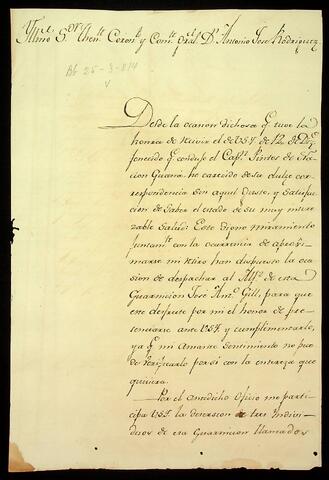 Illmo S.or Then.te Coron.l y Com.te gral D.n Antonio José Rodriguez
25-3-814
Desde la ocasion dichosa q.e tuve la
honrra de recivir el de VSY. de 12 de
fenecido q.e condujo el Cap.n
cion Guaná, he carecido de su dulce cor-
respondencia en aquel Puesto, y satisfac-
cion de saber el estado de su muy inte-
sable Salud: Este digno miramiento
juntam.te con la ocurrencia de aproxi-
marse mi Retiro han dispuesto la oca
sion de despachar al Alf.s de esta
Guarnicion José Ant.o Gill, para que
este disfrute por mi el honor de pre-
senciarse ante VSY. y cumplimentarlo,
ya q.e mi amante sentimiento no pue
de verificarlo por si con la entereza que
quiciera.
Por el antedicho Oficio me parti-
cipa VSY. la desercion de tres Indivi-
duos de esa Guarnicion llamados